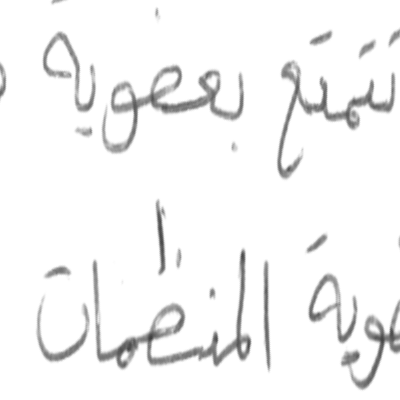 تتمتع بعضوية
المنظمات